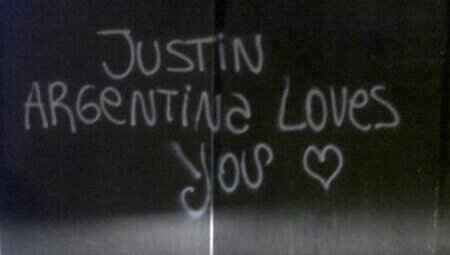 JUSTIN
ARGENTINA LOVES
YOU ♡